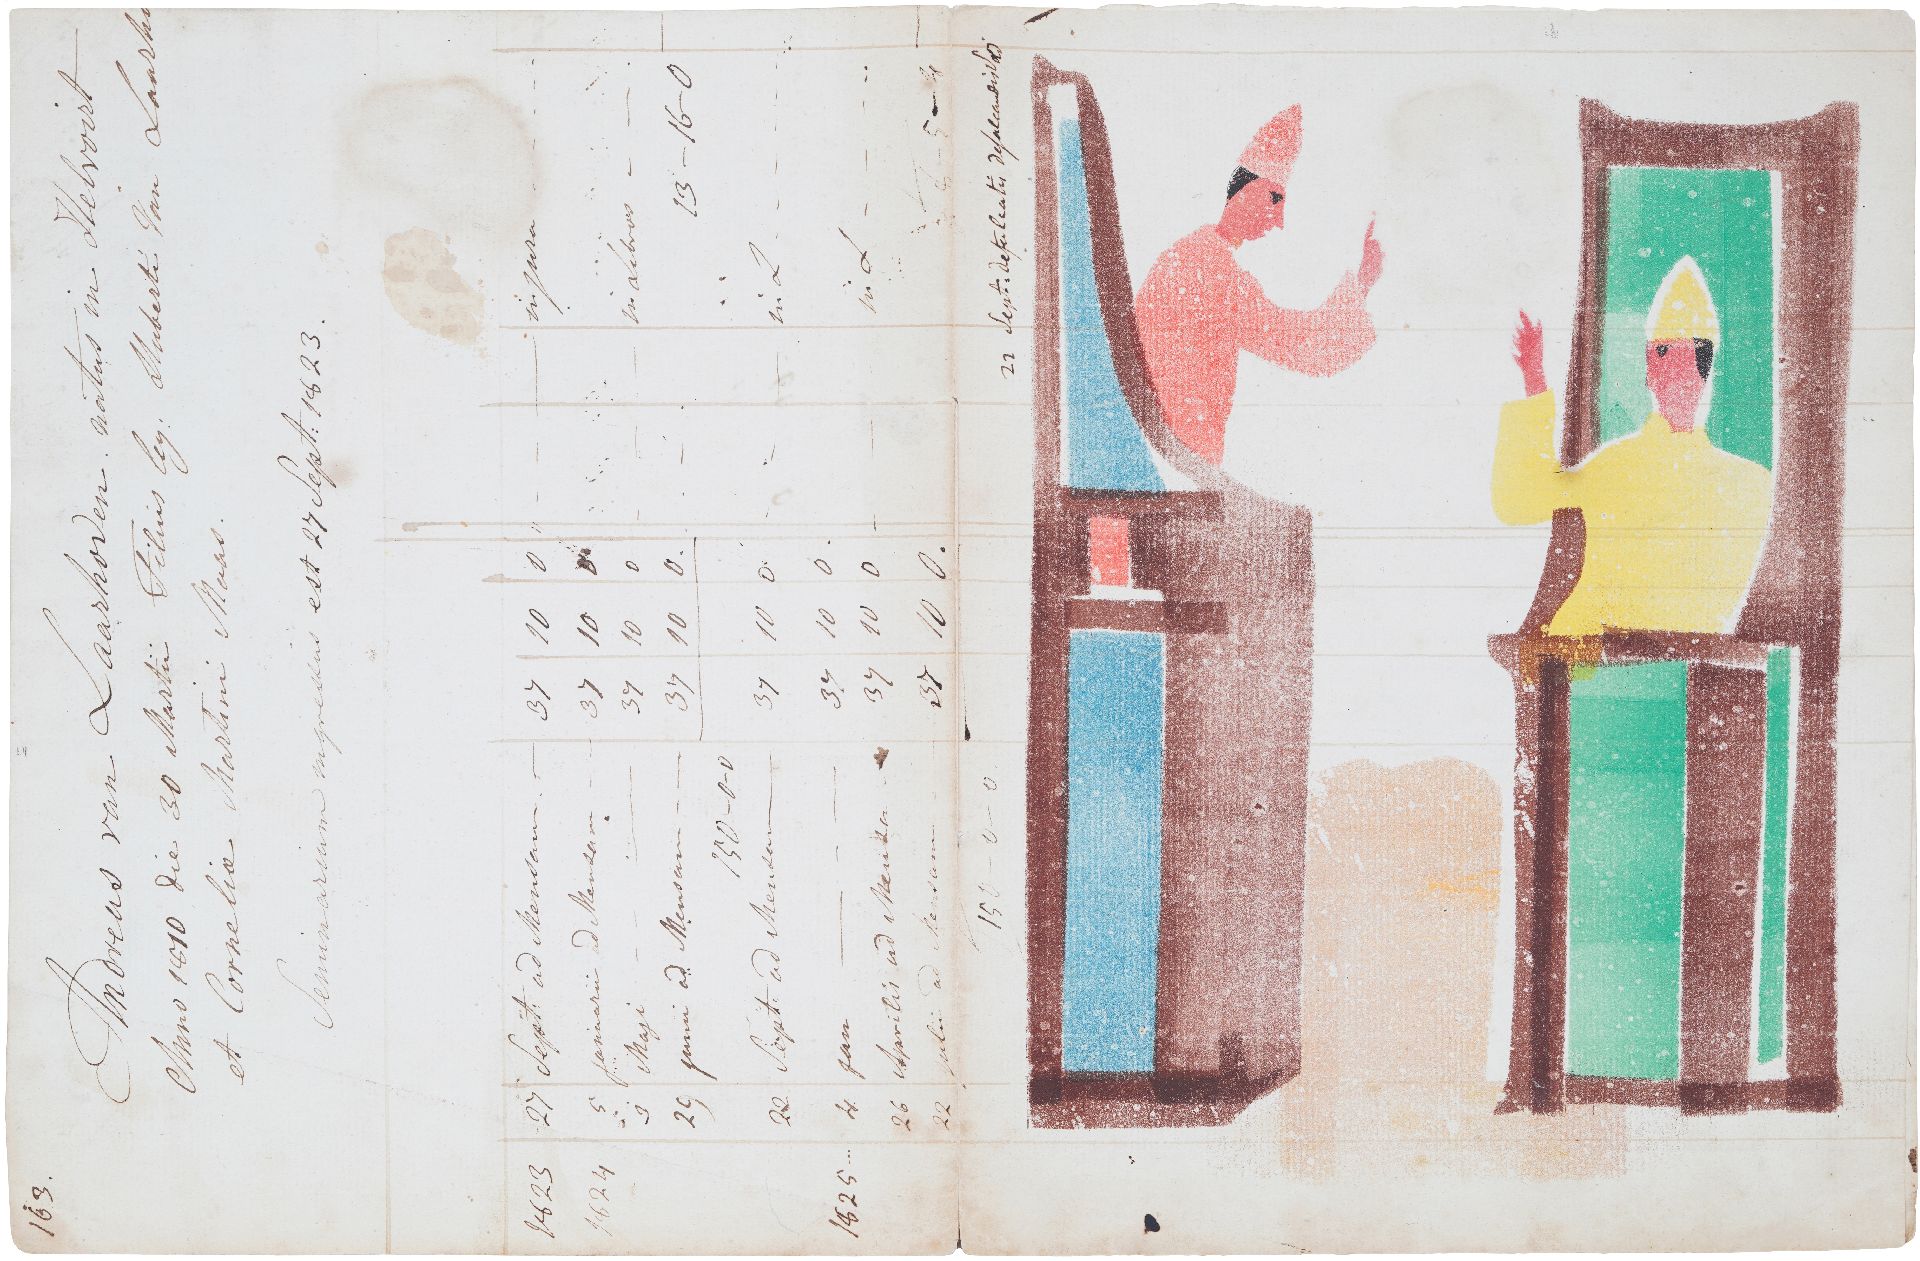 163.
Andreas van Laarhoven. natus in Helvoirt
Anno 1810 die 30 Martii Filius leg. Huberti Van Laarh
et Corneliæ Martini Maas.
Seminarium ingressus est 27 Sept: 1823.
1823 27 Sept: ad Mensam 37 10 0 in
1824 5 januarii ad Mensam 37 10 0
3 Maji 37 10 0 in
29 junii ad Mensam 37 10 0. 13-16-0
150-0-0
22 Sept: ad Mensam 37 10 0 in L
1825 4 jan 37 10 0.
26 Aprilis ad Mensam 37 10 0 in L
22 julii ad Mensam 37 10 0.
150-0-0
22 Sept: